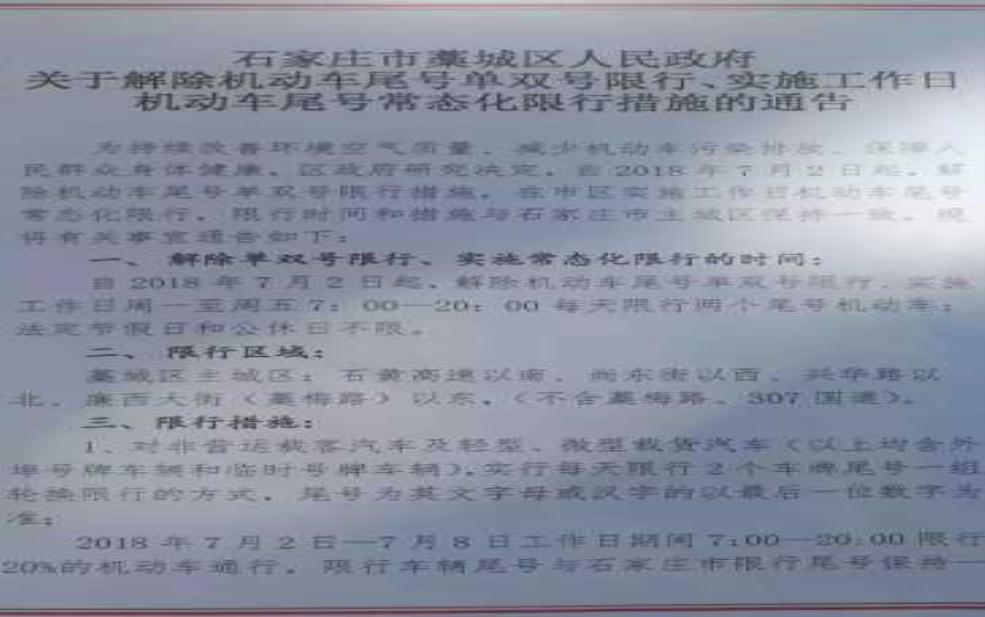 石家庄市藁城区人民政府
关于解除机动车尾号单双号限行、实施工作日
机动车尾号常态化限行措施的通告
为持续改善环境空气质量，减少机动车污染排放，保障人
民群众身体健康，区政府研究决定，自2018年7月2日起，解
除机动车尾号单双号限行措施，在市区实施工作日机动车尾号
常态化限行，限行时间和措施与石家庄市主城区保持一致。现
将有关事宜通告如下：
一、解除单双号限行、实施常态化限行的时间：
自2018年7月2日起，解除机动车尾号单双号限行，实施
工作日周一至周五7：00—20：00每天限行两个尾号机动车；
法定节假日和公休日不限。
二、限行区域：
藁城区主城区：石黄高速以南、尚东街以西、兴华路以
北、廉西大街（藁梅路）以东。（不含藁梅路、307国道）。
三、限行措施：
1、对非营运载客汽车及轻型、微型载货汽车（以上均含外
埠号牌车辆和临时号牌车辆），实行每天限行2个车牌尾号一组
轮换限行的方式。尾号为英文字母或汉字的以最后一位数字为
准；
2018年7月2日—7月8日工作日期间7:00—20:00限行
20%的机动车通行。限行车辆尾号与石家庄市限行尾号保持一